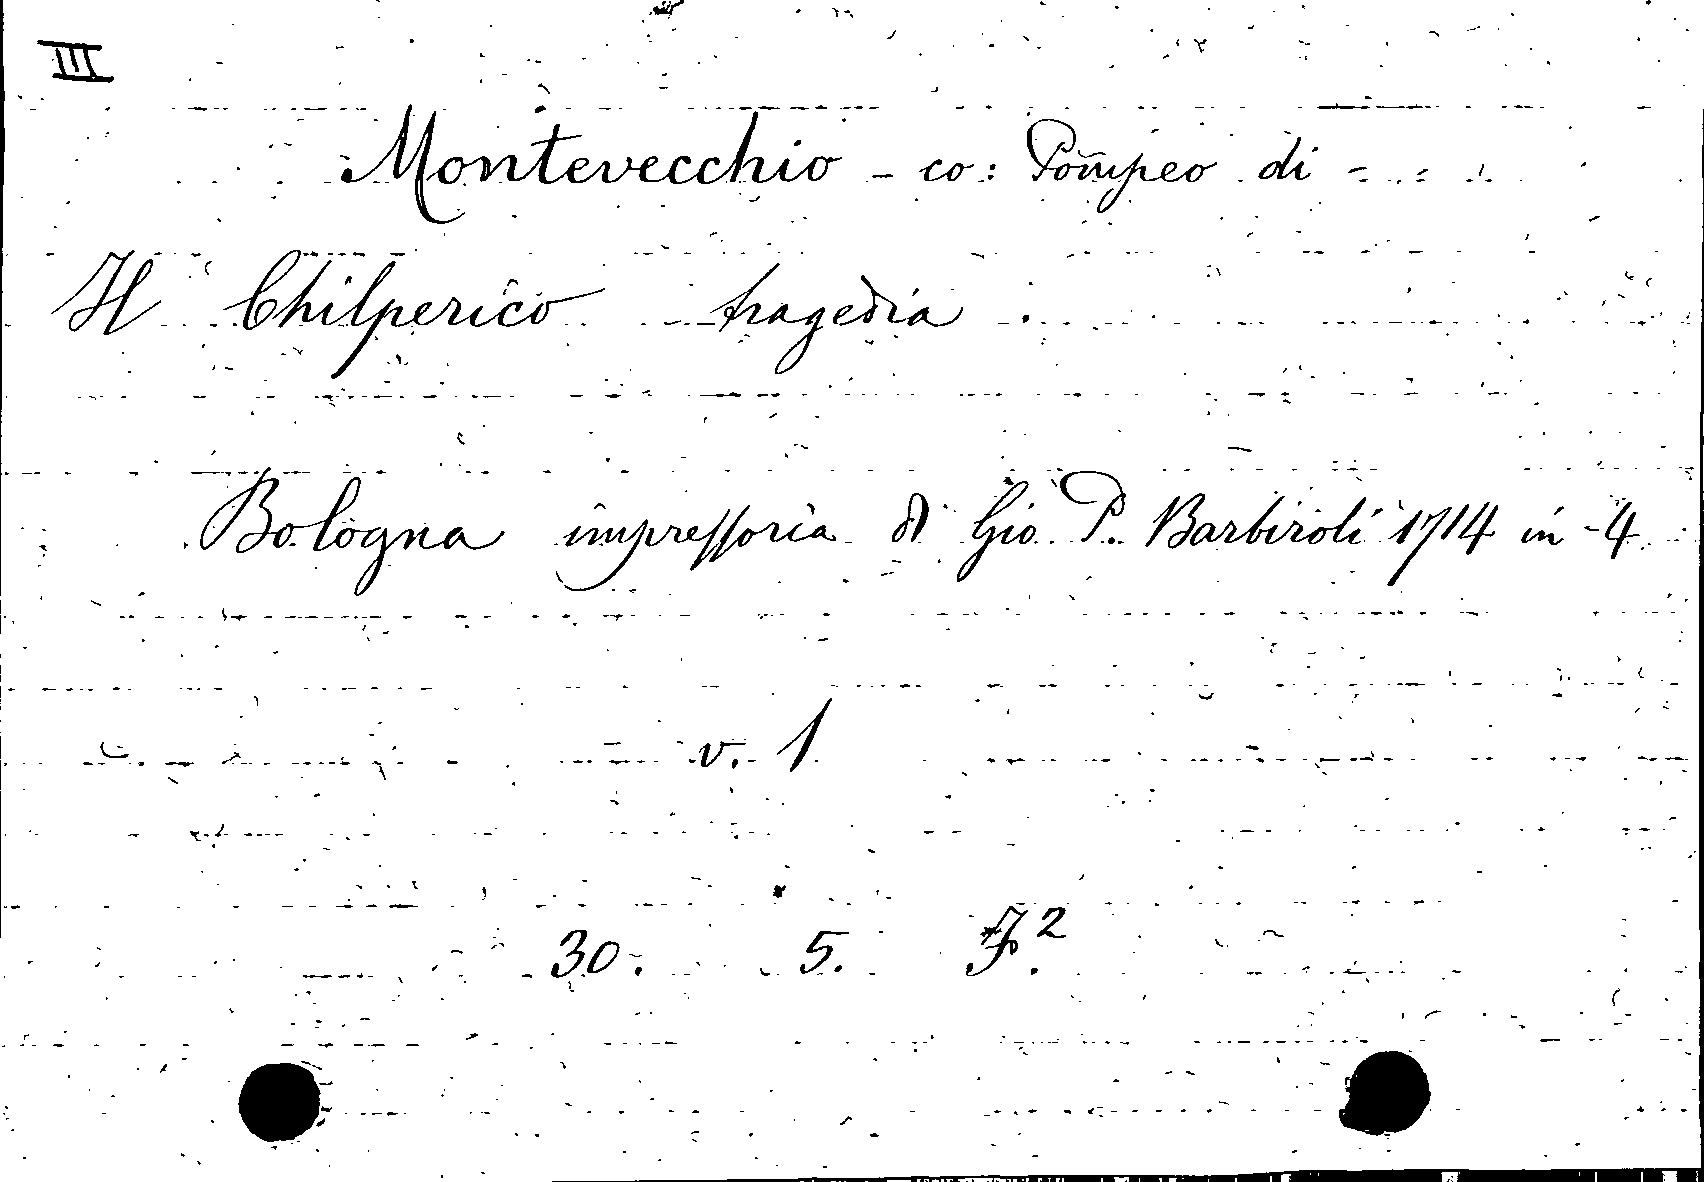 III
Montevecchio - co: Pompeo di -
Il Chilperico tragedia.
Bologna impressoria di Gio. P. Barbiroli 1714 in-4
v. 1
30. 5.